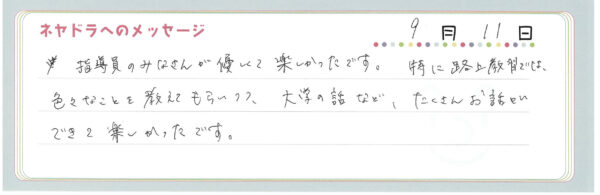 ネヤドラへのメッセージ 9月11日
指導員のみなさんが優しくて楽しかったです。 特に路上教習では、
色々なことを教えてもらいつつ、 大学の話など、たくさんお話し
できて楽しかったです。